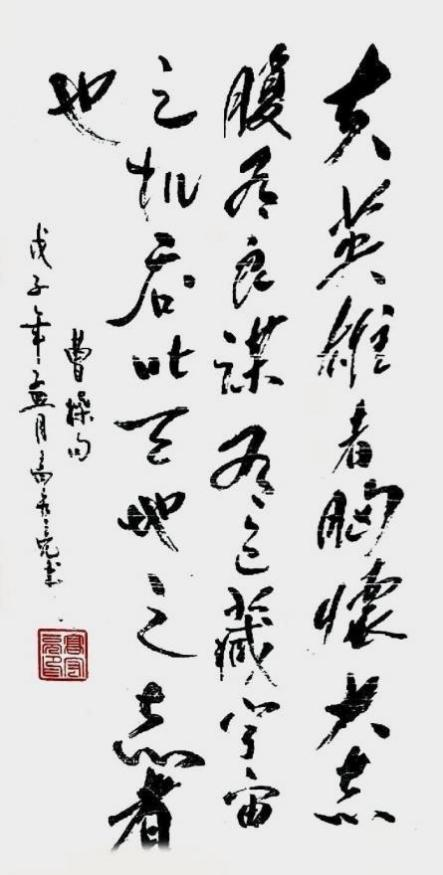 夫英雄者胸懷大志
腹有良謀有包藏宇宙
之机吞吐天地之志者
也
曹操句
戊子年孟月高亮书